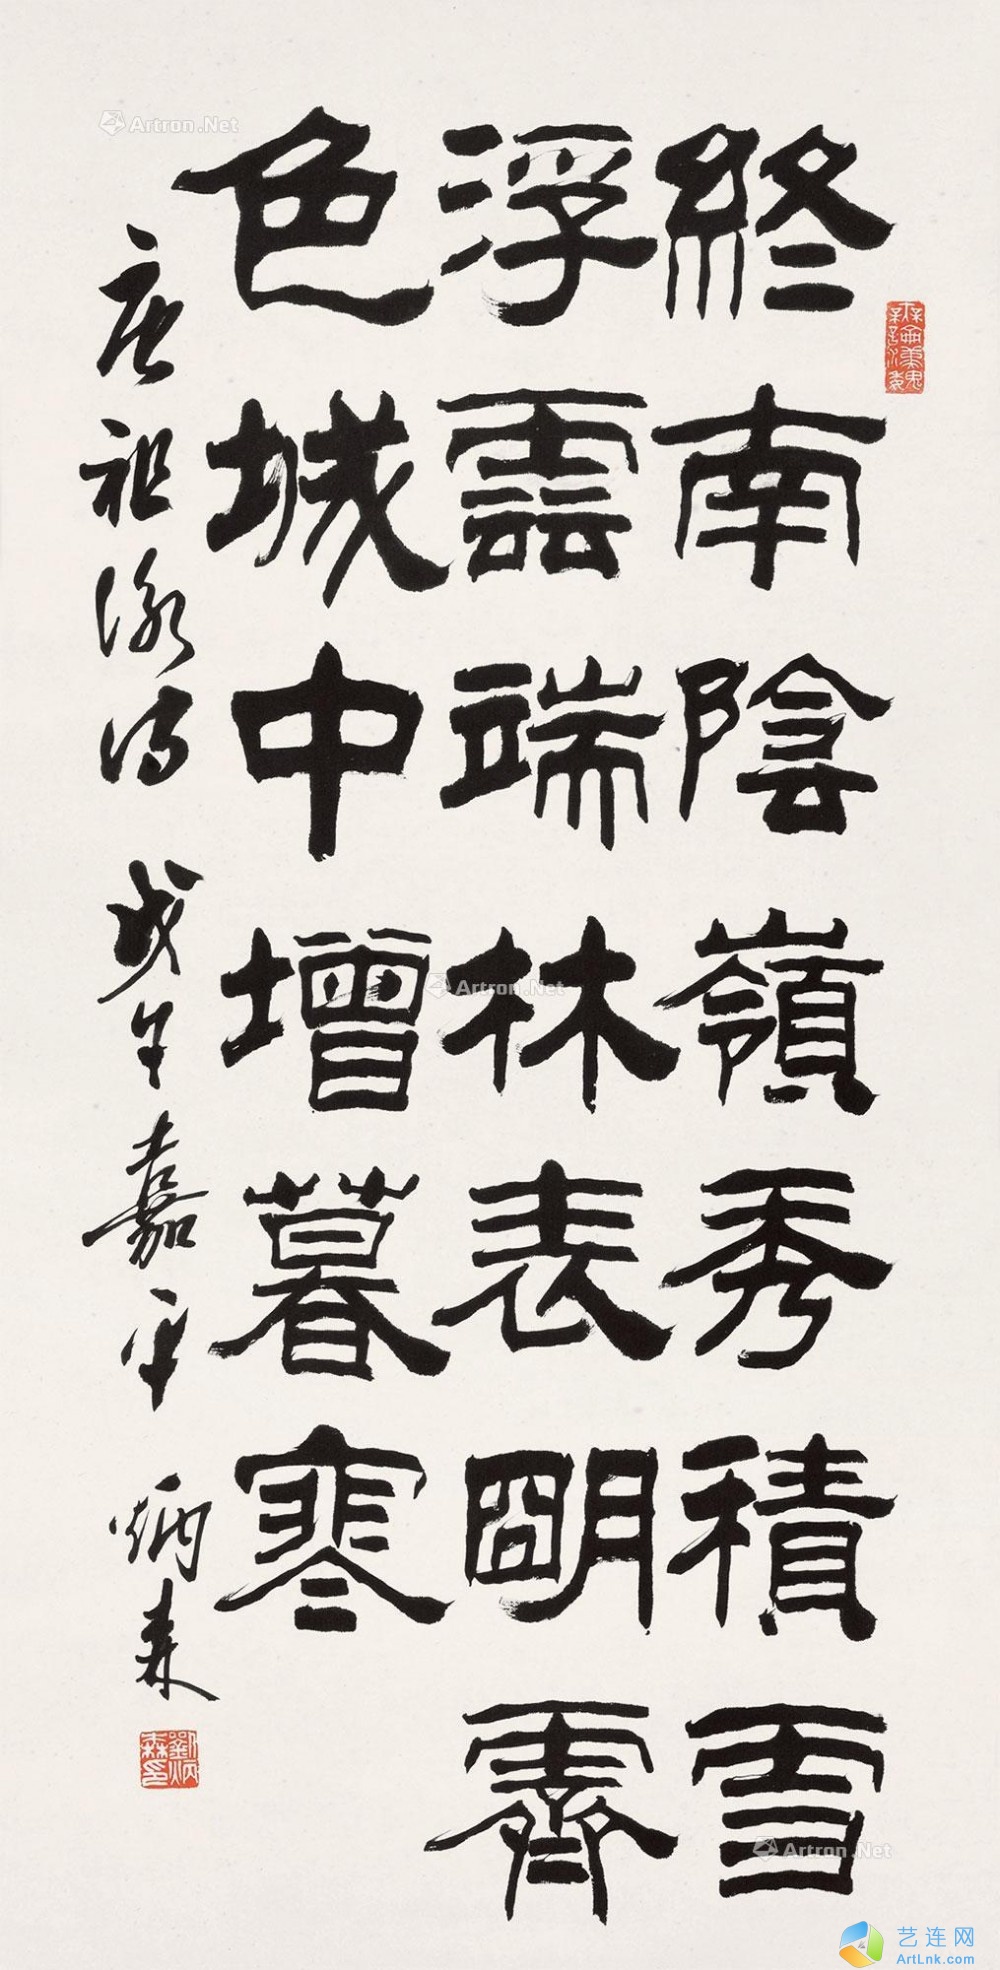 終南陰嶺秀積雪
浮雲端林表朙霽
色城中增暮寒
唐祖詠詩 戊午嘉平 炳森
劉炳森印
Artron.Net
Artron.Net
Artron.Net
艺连网
ArtLnk.com